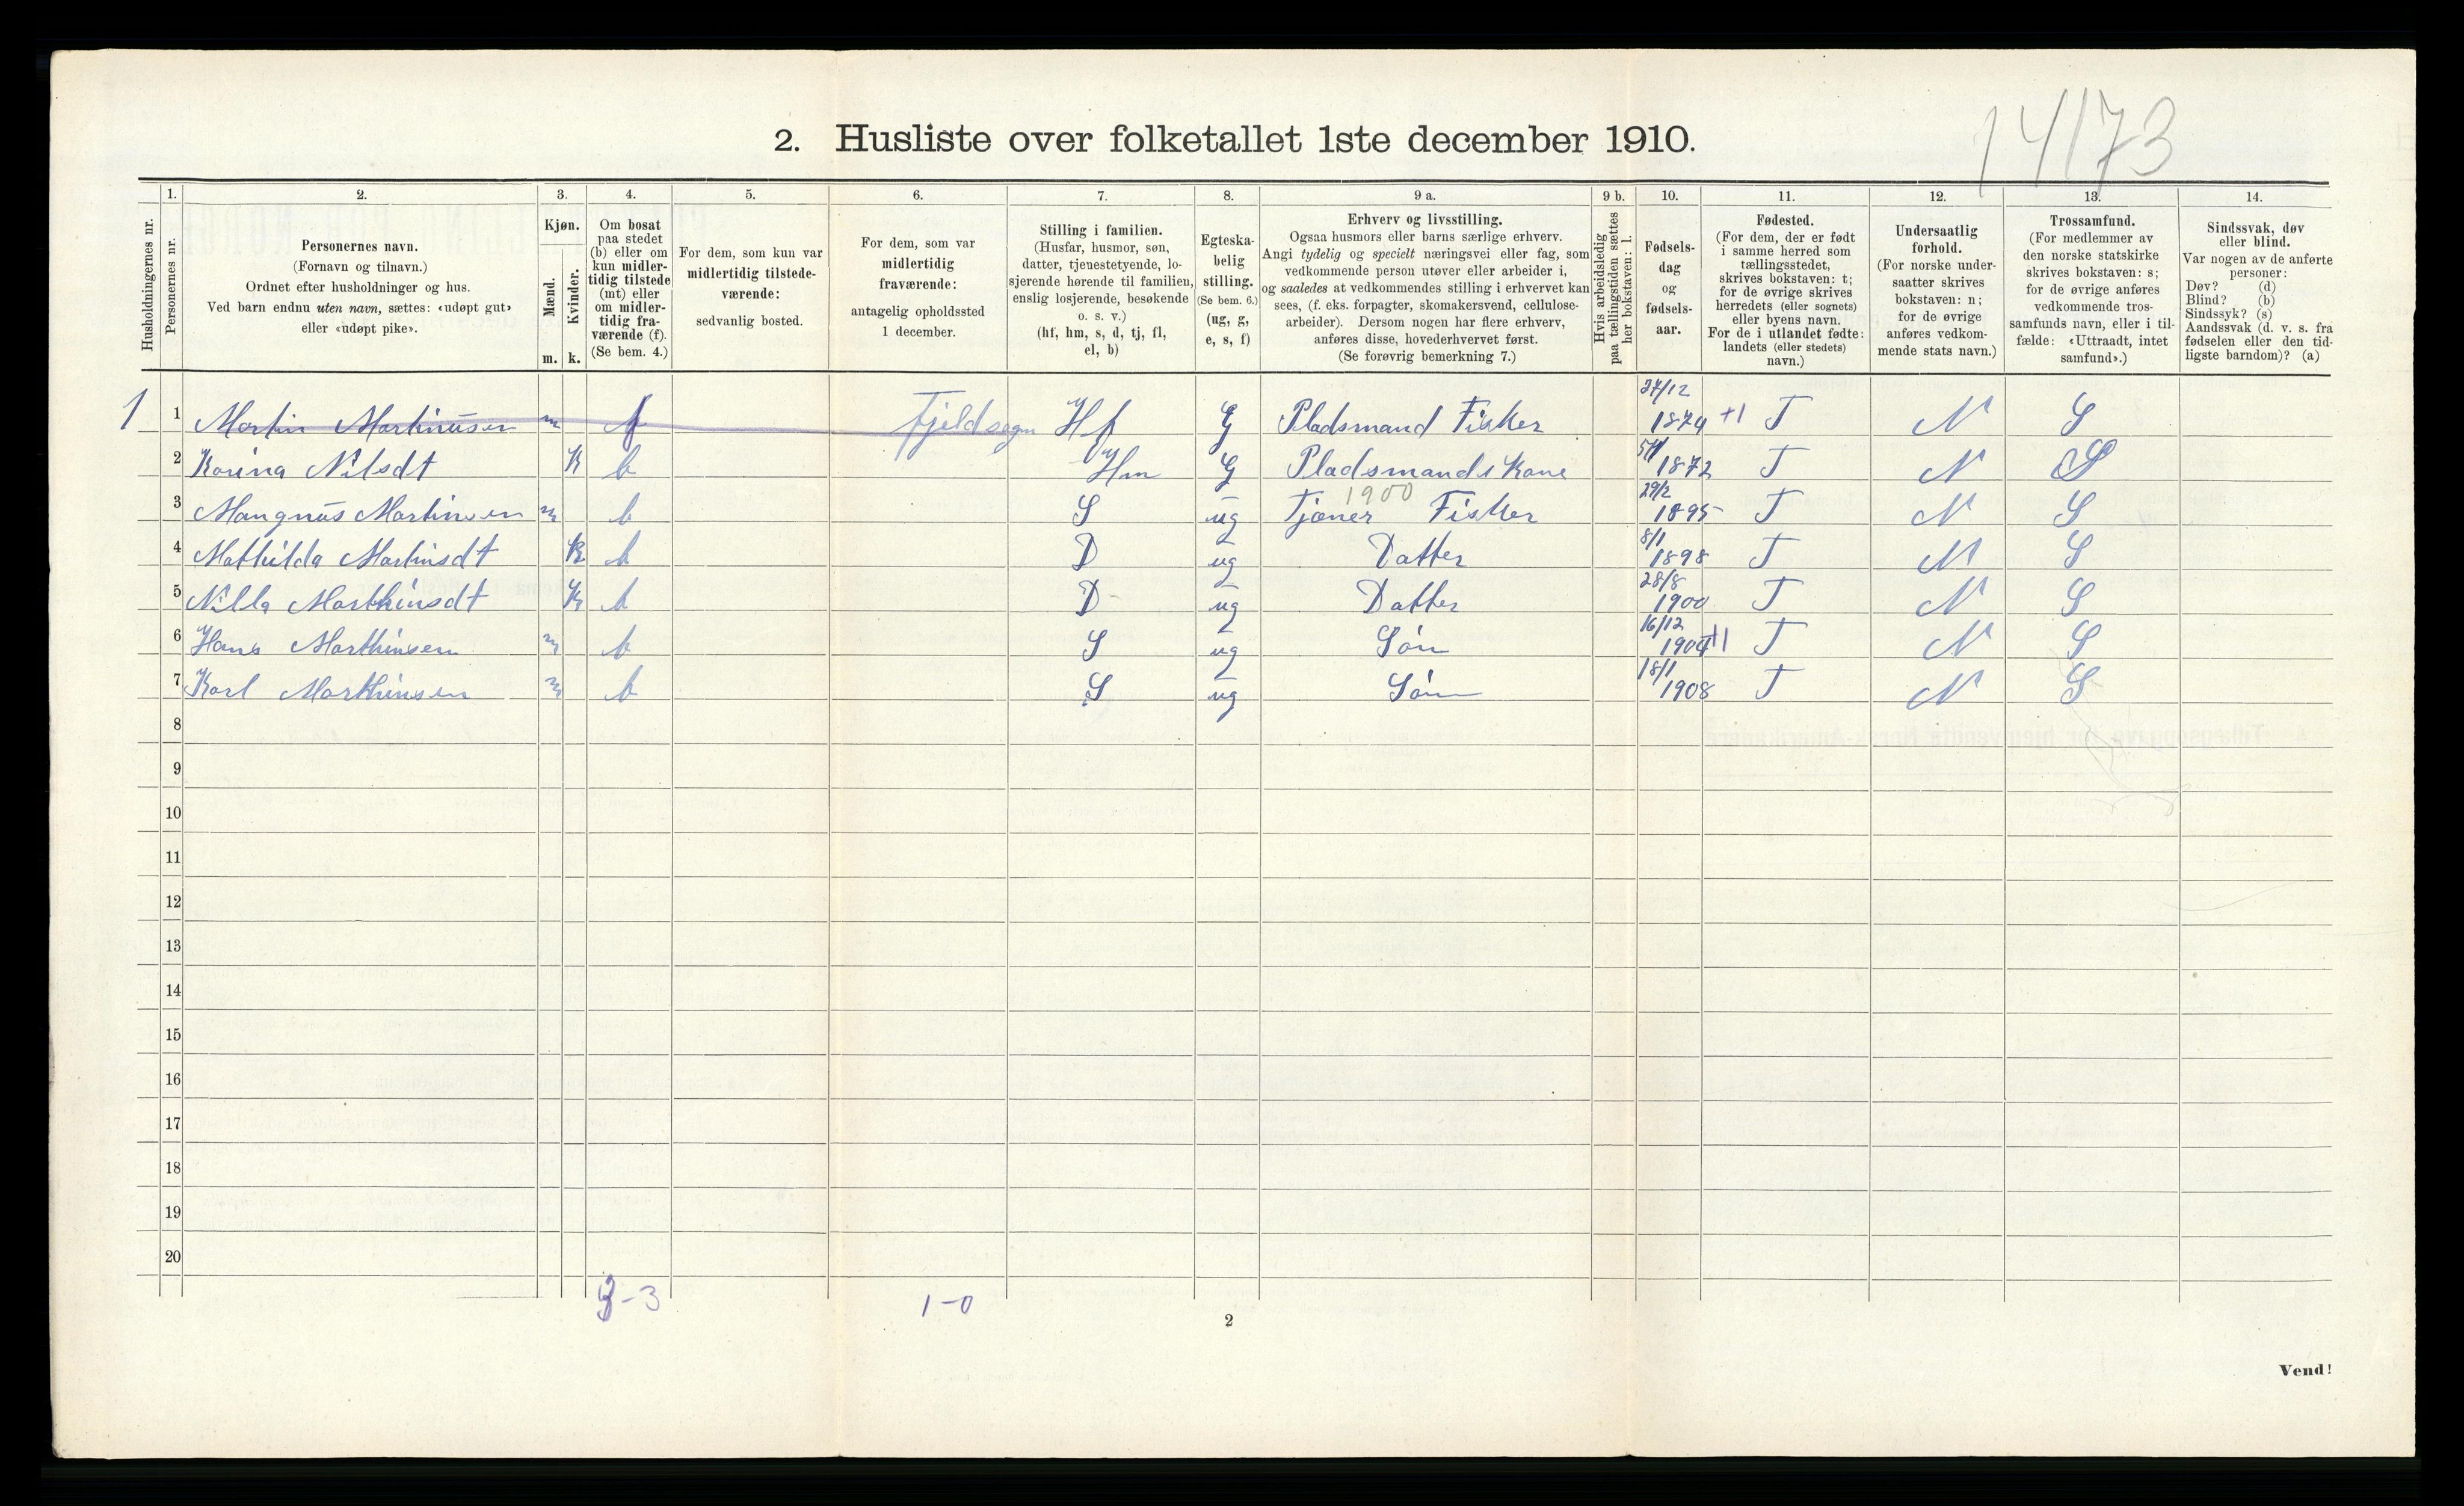 14173
2. Husliste over folketallet 1ste december 1910.
1. 2. 3. 4. 5. 6. 7. 8. 9 a. 9 b. 10. 11. 12. 13. 14.
Husholdningernes nr.
Personernes nr.
Personernes navn.
(Fornavn og tilnavn.)
Ordnet efter husholdninger og hus.
Ved barn endnu uten navn, sættes: «udøpt gut»
eller «udøpt pike».
Kjøn.
Mænd.
Kvinder.
m. k.
Om bosat
paa stedet
(b) eller om
kun midler-
tidig tilstede
(mt) eller
om midler-
tidig fra-
værende (f).
(Se bem. 4.)
For dem, som kun var
midlertidig tilstede-
værende:
sedvanlig bosted.
For dem, som var
midlertidig
fraværende:
antagelig opholdssted
1 december.
Stilling i familien.
(Husfar, husmor, søn,
datter, tjenestetyende, lo-
sjerende hørende til familien,
enslig losjerende, besøkende
o. s. v.)
(hf, hm, s, d, tj, fl,
el, b)
Egteska-
belig
stilling.
(Se bem. 6.)
(ug, g,
e, s, f)
Erhverv og livsstilling.
Ogsaa husmors eller barns særlige erhverv.
Angi tydelig og specielt næringsvei eller fag, som
vedkommende person utøver eller arbeider i,
og saaledes at vedkommendes stilling i erhvervet kan
sees, (f. eks. forpagter, skomakersvend, cellulose-
arbeider). Dersom nogen har flere erhverv,
anføres disse, hovederhvervet først.
(Se forøvrig bemerkning 7.)
Hvis arbeidsledig
paa tællingstiden sættes
her bokstaven: l.
Fødsels-
dag
og
fødsels-
aar.
Fødested.
(For dem, der er født
i samme herred som
tællingsstedet,
skrives bokstaven: t;
for de øvrige skrives
herredets (eller sognets)
eller byens navn.
For de i utlandet fødte:
landets (eller stedets)
navn.)
Undersaatlig
forhold.
(For norske under-
saatter skrives
bokstaven: n;
for de øvrige
anføres vedkom-
mende stats navn.)
Trossamfund.
(For medlemmer av
den norske statskirke
skrives bokstaven: s;
for de øvrige anføres
vedkommende tros-
samfunds navn, eller i til-
fælde: «Uttraadt, intet
samfund».)
Sindssvak, døv
eller blind.
Var nogen av de anførte
personer:
Døv? (d)
Blind? (b)
Sindssyk? (s)
Aandssvak (d. v. s. fra
fødselen eller den tid-
ligste barndom)? (a)
1 1 Martin Martinusen m f Fjeldsogn Hf G Pladsmand Fisker 27/12 1874 +1 T N S
2 Karina Nilsdt K b Hm G Pladsmands Kone 1872 T N S
1900
3 Mangnus Martinsen m b S ug Tjener Fisker 29/2 1895 T N S
4 Mathilda Martinsdt K b D ug Datter 8/1 1898 T N S
5 Nilla Marthinsdt K b D ug Datter 28/8 1900 T N S
6 Hans Marthinsen m b S ug Søn 16/12 1904 +1 T N S
7 Karl Marthinsen m b S ug Søn 18/1 1908 T N S
8
9
10
11
12
13
14
15
16
17
18
19
20
3-3 1-0
2
Vend!